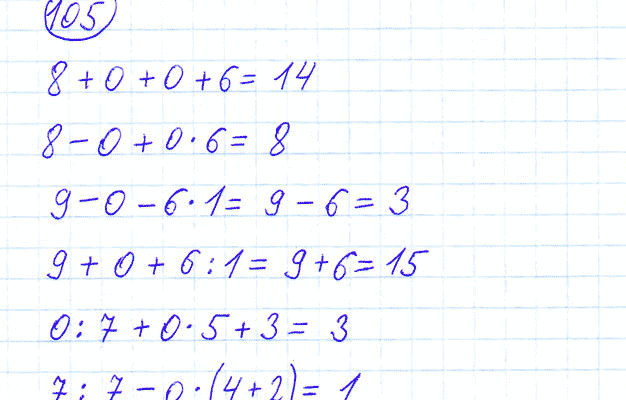 105
8 + 0 + 0 + 6 = 14
8 - 0 + 0 · 6 = 8
9 - 0 - 6 · 1 = 9 - 6 = 3
9 + 0 + 6 : 1 = 9 + 6 = 15
0 : 7 + 0 · 5 + 3 = 3
7 : 7 - 0 · (4 + 2) = 1